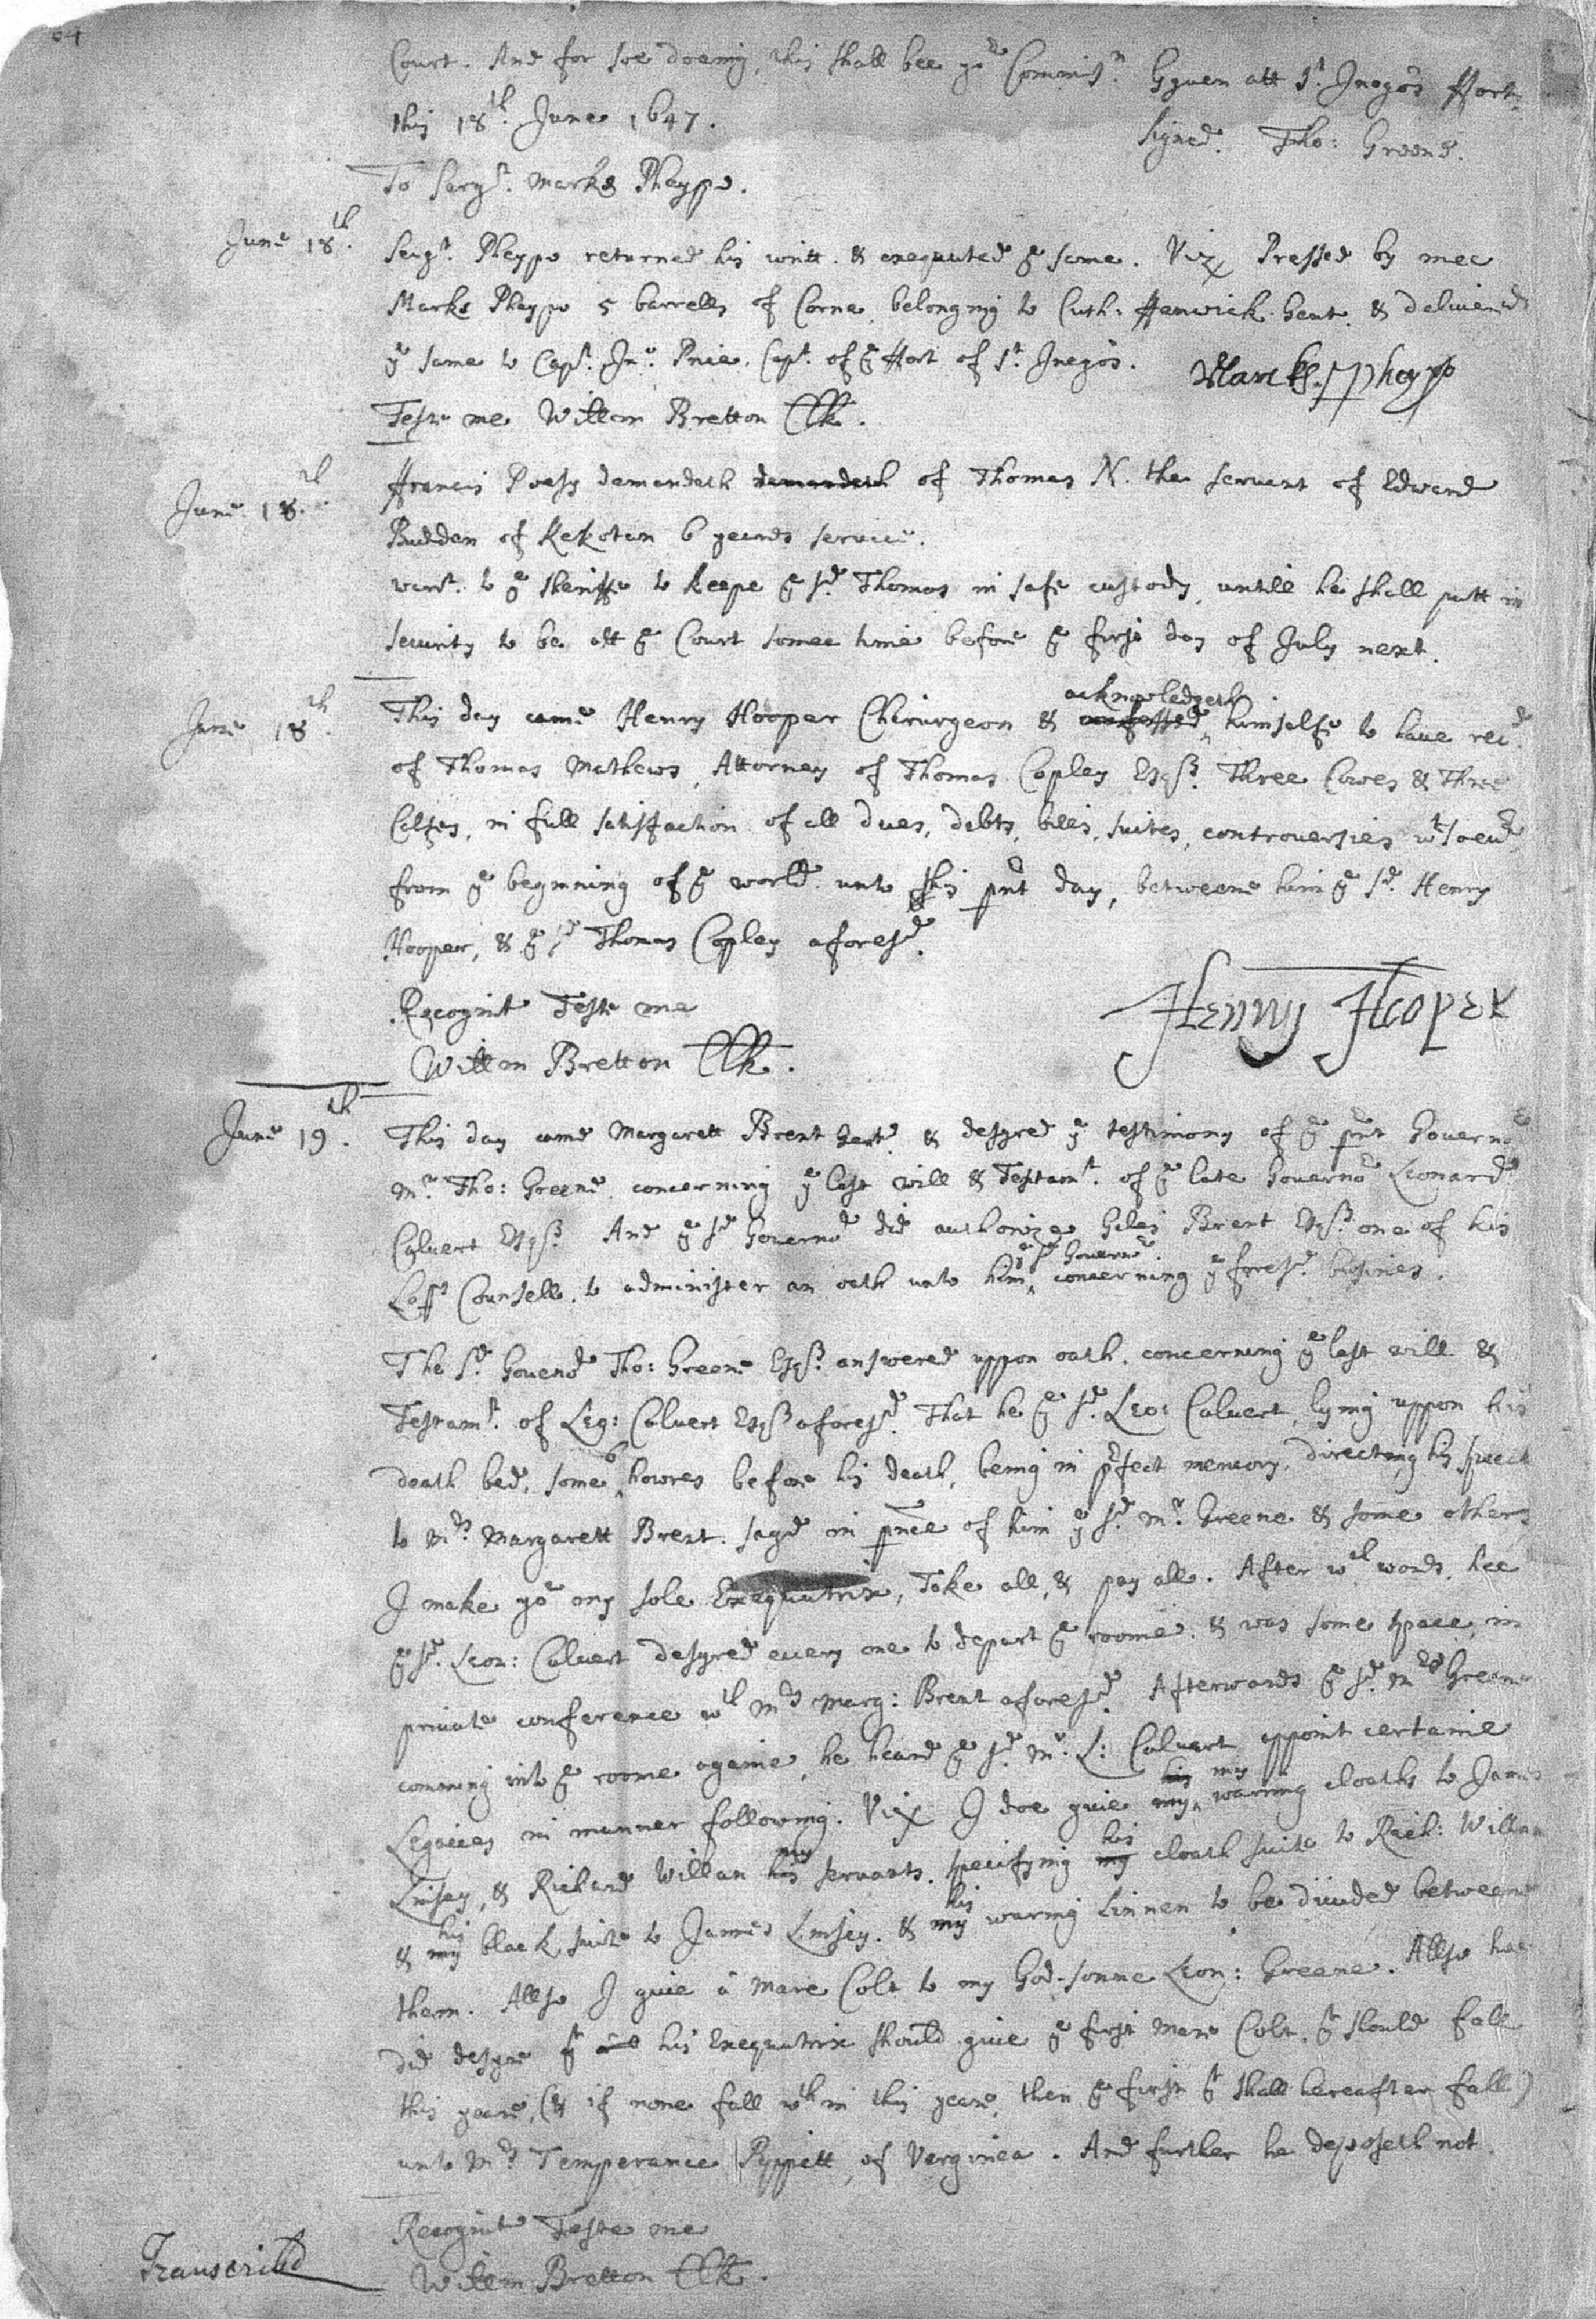 64
Court. And for soe doeing, this shall bee yor Commissn. Gyuen att St. Inegos ffort
this 18th. June 1647.
Signed. Tho: Greene.
To Sargt. Marks Pheypo.
June 18th. Sergt. Pheypo returned his writt. & exequuted ye same. Viz Pressed by mee
Marks Pheypo 5 barrells of Corne, belonging to Cuth: ffenwick Gent. & deliuered
ye same to Capt. Jno. Price. Capt. of ye ffort of St. Inegos. Marcks Pheypo
Teste me Willm Bretton Clk.
June 18th. ffrancis Posey demandeth demandeth of Thomas N. the seruant of Edward
Budden of Kekotan 6 yeares seruice.
warrt. to ye Sheriffe to keepe ye sd. Thomas in safe custody, untill he shall putt in
security to be att ye Court some time before ye first day of July next.
June 18th. This day came Henry Hooper Chirurgeon & confessed acknowledgeth himselfe to haue recd.
of Thomas Mathews, Attorney of Thomas Copley Esqr. Three Cowes & Three
Calfes, in full satisfaction of all dues, debts, bills, suites, controuersies wtsoeur
from ye beginning of ye world unto this pnt day, betweene him ye sd. Henry
Hooper, & ye sd Thomas Copley aforesd.
Recognit Teste me Henry Hooper
Willm Bretton Clk.
June 19th. This day came Margarett Brent Gent. & desyred ye testimony of ye pnt Gouernor
Mr. Tho: Greene concerning ye last will & Testamt. of ye late Gouernor Leonard
Caluert Esqr. And ye sd Gouernor did authorize Giles Brent Esqr. one of his
Lopps Counsell, to administer an oath unto him ye sd Gouernor concerning ye foresd. busines.
The sd. Gouernor Tho: Greene Esqr. answered uppon oath, concerning ye last will &
Testamt. of Leo: Caluert Esqr aforesd. That he ye sd. Leo: Caluert, lying uppon his
death bed, some 6 howres before his death, being in pfect memory, directing his speech
to Mrs. Margarett Brent. sayd in pnce of him ye sd. Mr. Greene & some others
I make yo my sole Exequutrix, Take all, & pay all. After wch words, hee
ye sd. Leon: Caluert desyred euery one to depart ye roome & was some space in
priuate conference wth Mrs Marg: Brent aforesd. Afterwards ye sd. Mr Greene
comming into ye roome againe, he heard ye sd. Mr. L: Caluert appoint certaine
Legacies in manner following. Viz I doe giue my his my waring cloaths to James
Linsey, & Richard Willan his my seruants, specifying my his cloath suite to Rich: Willan
& my his black suite to James Linsey. & my his waring Linnen to be diuided betweene
them. Allso I giue a Mare Colt to my God-sonne Leon: Greene. Allso hee
did desyre yt his Exequutrix should giue ye first Mare Colt. yt should fall
this yeare, (& if none fall wthin this yeare, then ye first yt shall hereafter fall)
unto Mrs Temperance Pyppett, of Verginea. And further he deposeth not.
Recognit Teste me
Willm Bretton Clk.
Transcribd